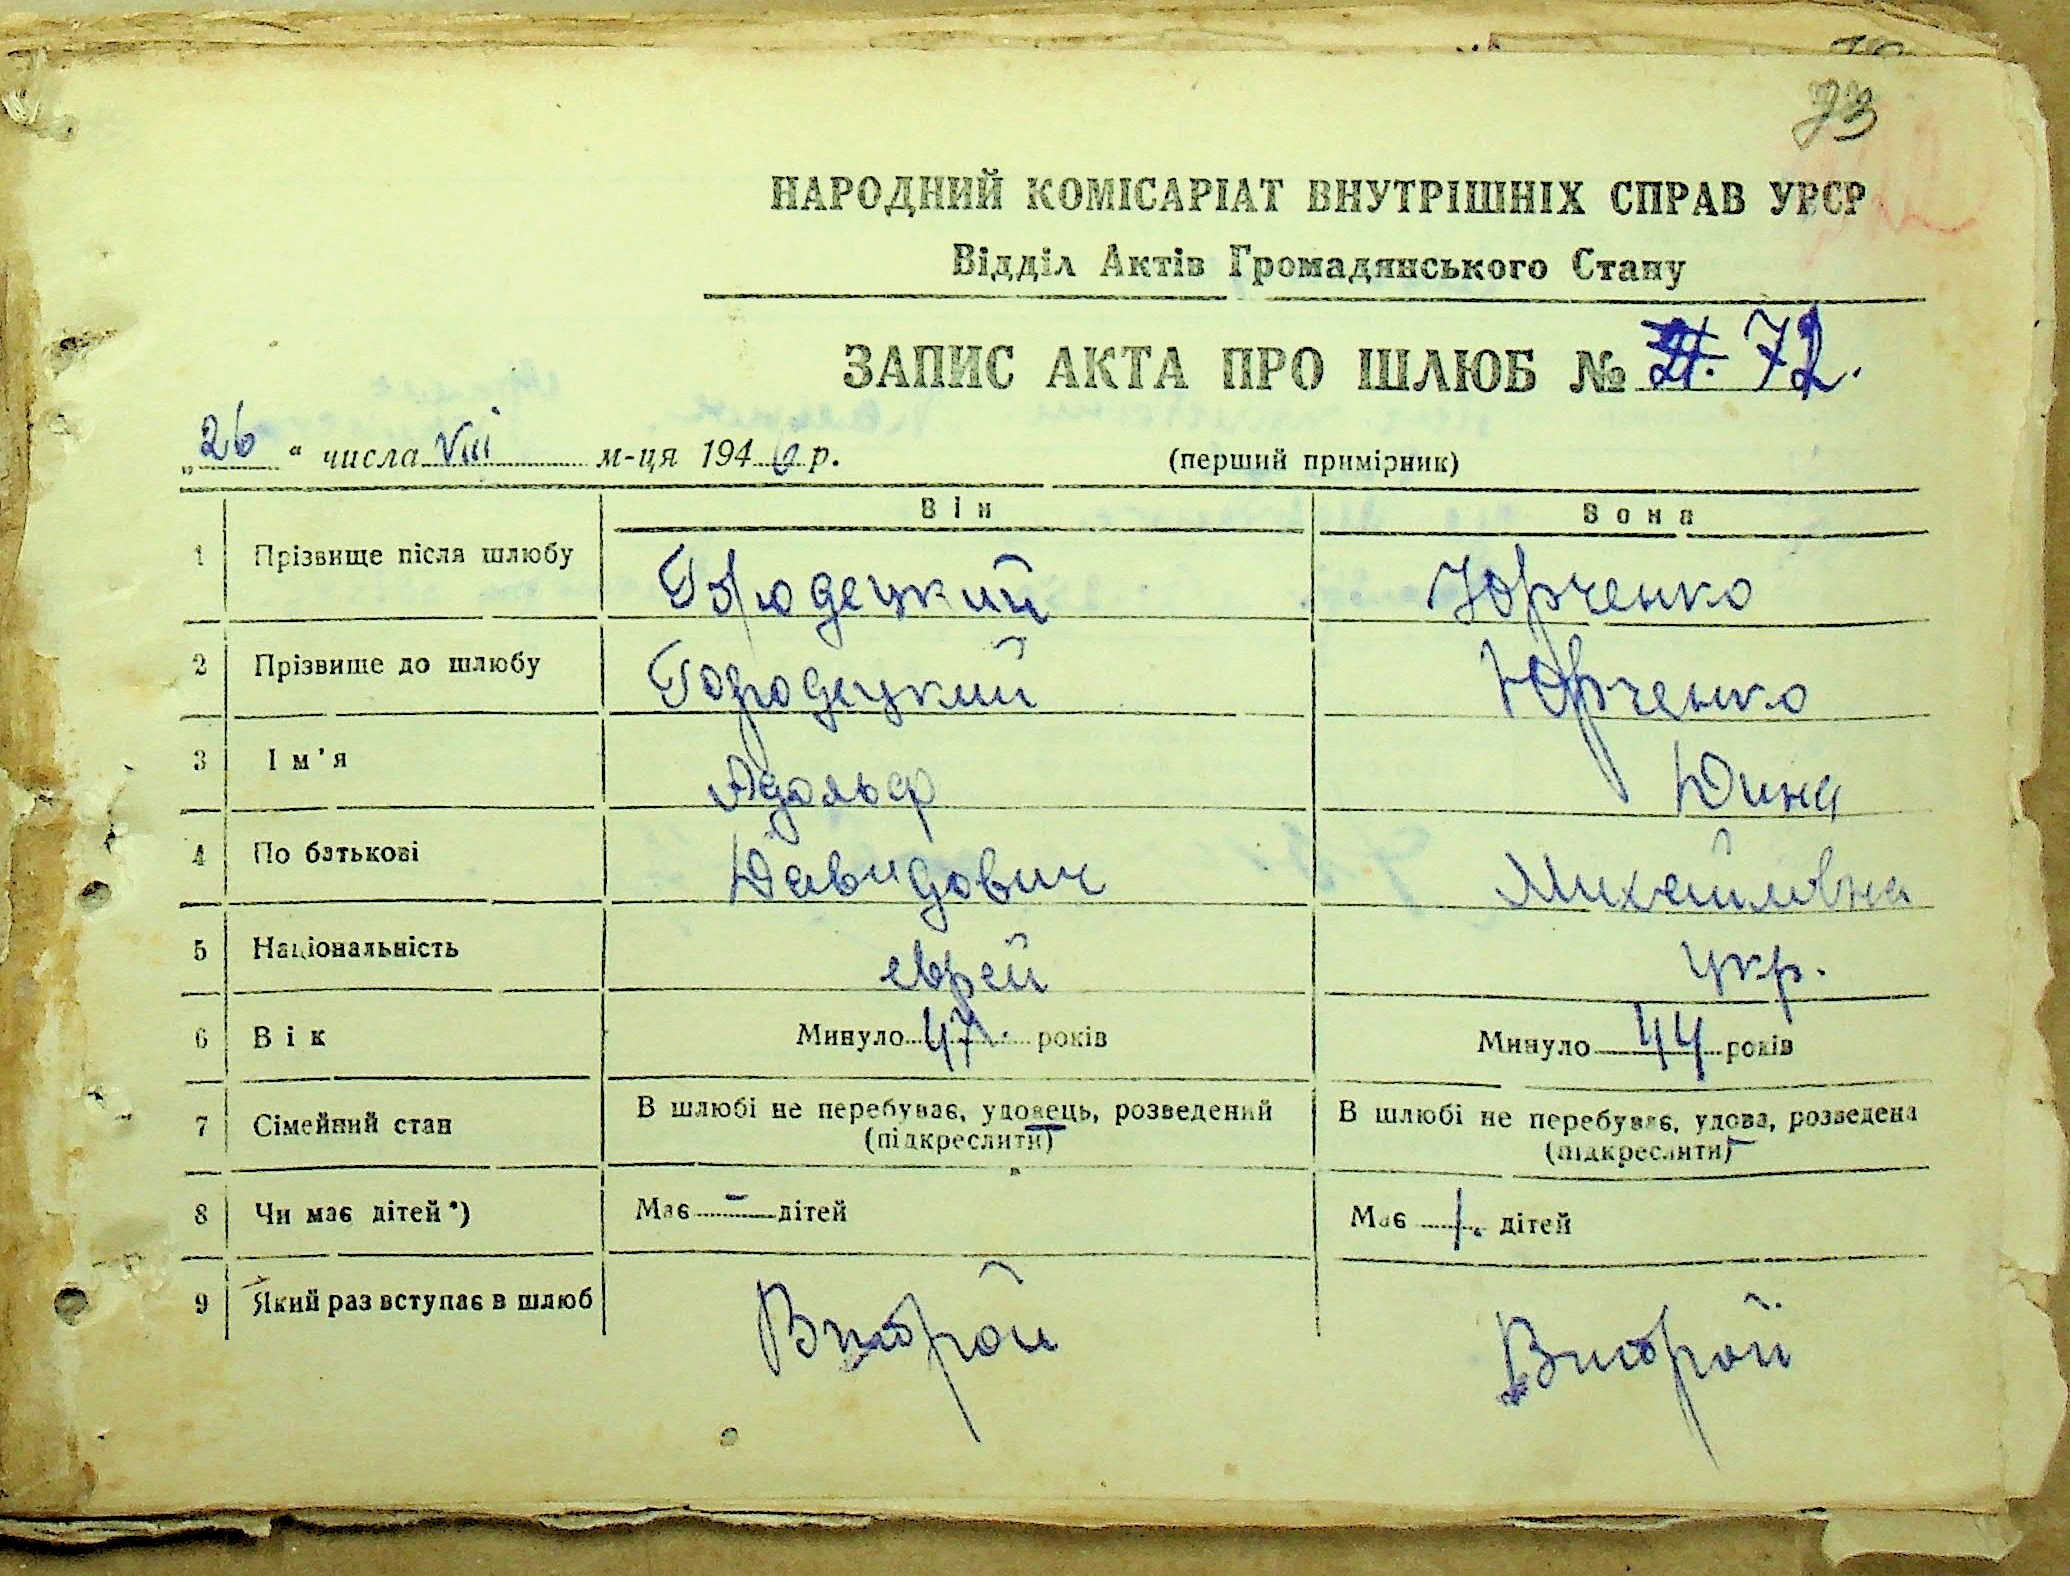 73
НАРОДНИЙ КОМІСАРІАТ ВНУТРІШНІХ СПРАВ УРСР
Відділ Актів Громадянського Стану
ЗАПИС АКТА ПРО ШЛЮБ № 72.
„26“ числа VIII м-ця 1946 р. (перший примірник)
Він Вона
1 Прізвище після шлюбу Городецкий Юрченко
2 Прізвище до шлюбу Городецкий Юрченко
3 Ім'я Адольф Дина
4 По батькові Давидович Михайловна
5 Національність еврей укр.
6 Вік Минуло 47. років Минуло 44 років
7 Сімейний стан В шлюбі не перебуває, удовець, розведений В шлюбі не перебуває, удова, розведена
(підкреслити) (підкреслити)
8 Чи має дітей*) Має – дітей Має 1. дітей
9 Який раз вступає в шлюб Второй Второй